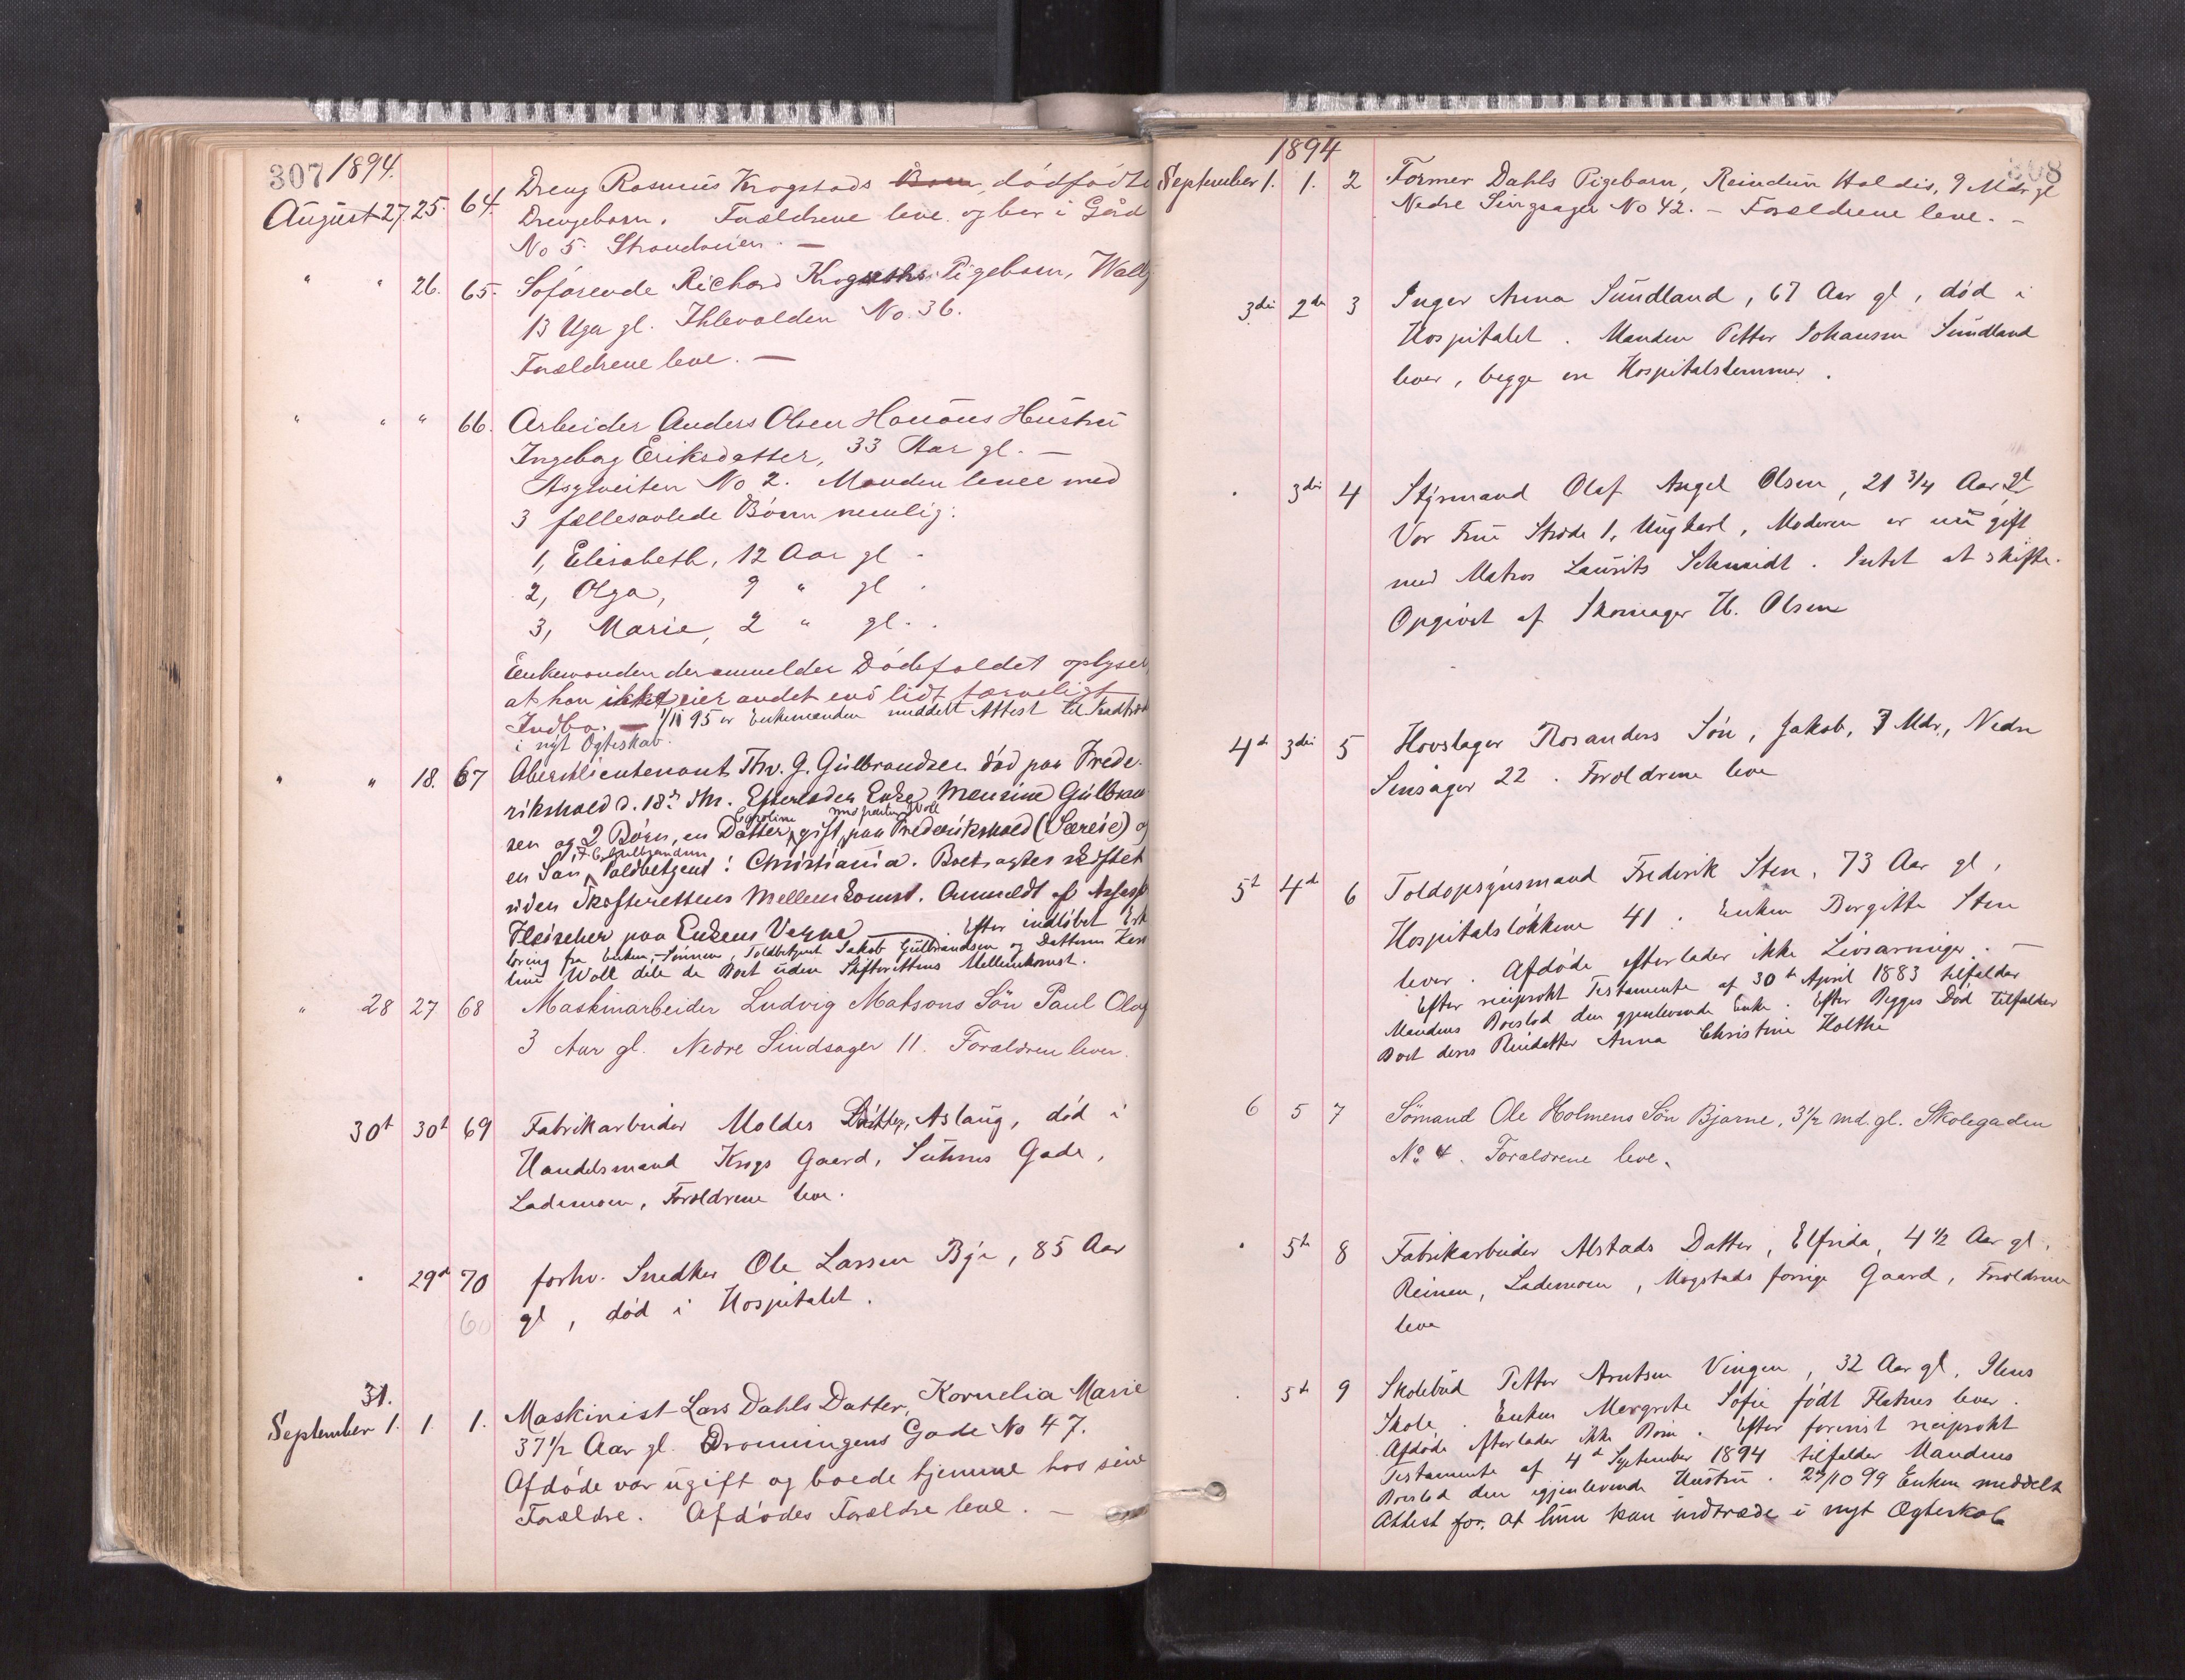 307 1894.
August 27. 25. 64. Dreng Rasmus Krogstads Barn, dødfødte
Drengebarn. Forældrene leve og bor i Gård
No 5. Strandveien. —
" " 26. 65. Søfarende Richard Pigebarn, Wally
13 Uger gl. Ihlevolden No 36.
Forældrene leve. —
" " " 66. Arbeider Anders Olsen Hustru
Ingeborg Eriksdatter, 33 Aar gl. —
Asylveiten No 2. Manden lever med
3 fællesavlede Børn nemlig:
1, Elisabeth, 12 Aar gl.
2, Olga, 9 " gl.
3, Marie, 2 " gl.
Enkemanden der anmelder Dødsfaldet oplyser,
at han ikke eier andet end lidt tarveligt
Indbo. — 95 er Enkemanden meddelt Attest til Indtræd
i nyt Ægteskab.
" " 18. 67 Oberstlieutenant Thv. G. Gulbrandsen død paa Frede-
rikshald d. 18de ds. Efterlader Enke Maurine Gulbran
sen og 2 Børn, en Datter, Caroline gift med Woll paa Frederikshald (Særeie) og
en Søn, J. C. Gulbrandsen Toldbetjent i Christiania. Boet agtes skiftet
uden Skifterettens Mellemkomst. Anmeldt af
Fleischer paa Enkens Vegne — Efter indløbet Erk
læring fra Enken, Sønnen, Toldbetjent Jakob Gulbrandsen og Datteren Karo
line Woll dele de Boet uden Skifterettens Mellemkomst.
" 28 27 68 Maskinarbeider Ludvig Matsons Søn Paul Olaf
3 Aar gl. Nedre Sindsager 11. Forældren lever.
30t 30t 69 Fabrikarbeider Moldes Datter, Aslaug, død i
Handelsmand Krogs Gaard, Suhms Gade,
Lademoen, Forældrene leve.
" 29d 70 forhv. Snedker Ole Larsen Bye, 85 Aar
gl, død i Hospitalet.
31.
September 1. 1 1. Maskinist Lars Dahls Datter, Kornelia Marie
37 1/2 Aar gl. Dronningens Gade No 47.
Afdøde var ugift og boede hjemme hos sine
Forældre. Afdødes Forældre leve. —
1894 308
September 1. 1. 2 Former Dahls Pigebarn, Reindun Haldis, 9 Mdr gl
Nedre Singsager No 42. — Forældrene leve. —
3die 2de 3 Inger Anna Sundland, 67 Aar gl, død i
Hospitalet. Manden Petter Johansen Sundland
lever, begge ere Hospitalslemmer.
" 3die 4 Styrmand Olaf Angel Olsen, 21 3/4 Aar gl
Vor Frue Stræde 1, Ungkarl, Moderen er nu gift
med Matros Laurits Schmidt. Intet at skifte.
Opgivet af Skomager H. Olsen
4d 3die 5 Hovslager Rosanders Søn, Jakob, 7 Mdr, Nedre
Sinsager 22. Forældrene leve
5t 4d 6 Toldopsynsmand Frederik Sten, 73 Aar gl,
Hospitalsløkkene 41. Enken Birgitte Sten
lever. Afdøde efterlader ikke Livsarvinger. —
Efter reciprokt Testamente af 30te April 1883 tilfalder
Mandens Boeslod den gjenlevende Enke. Efter Begges Død tilfalder
Boet deres Pleiedatter Anna Christine Holthe
6 5 7 Sømand Ole Holmens Søn Bjarne, 3 1/2 md. gl. Skolegaden
No 4. Forældrene leve.
" 5te 8 Fabrikarbeider Alstads Datter, Elfrida, 4 1/2 Aar gl.
Reinen, Lademoen, Mogstads forrige Gaard, Forældrene
leve
" 5te 9 Skolebud Petter Arntsen Vingen, 32 Aar gl, Ilens
Skole. Enken Margrete Sofie født Flatnes lever.
Afdøde efterlader ikke Børn. Efter forevist reciprokt
Testamente af 4de September 1894 tilfalder Mandens
Boeslod den igjenlevende Hustru. 27/10 99 Enken meddelt
Attest for, at hun kan indtræde i nyt Ægteskab